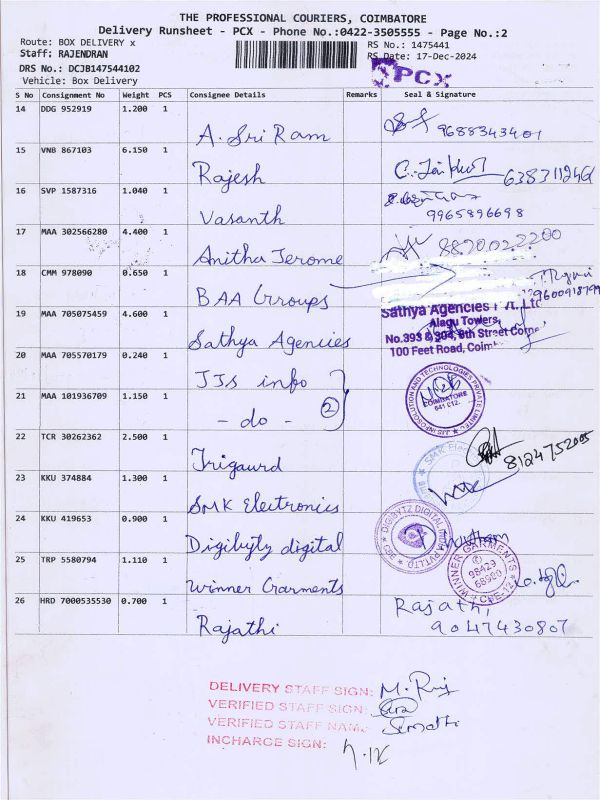 THE PROFESSIONAL COURIERS, COIMBATORE
Delivery Runsheet - PCX - Phone No.:0422-3505555 - Page No.:2
Route: BOX DELIVERY x
RS No.: 1475441
Staff: RAJENDRAN
RS Date: 17-Dec-2024
DRS No.: DCJB147544102
Vehicle: Box Delivery
PCX
S No Consignment No Weight PCS Consignee Details Remarks Seal & Signature
14 DDG 952919 1.200 1
A. Sri Ram 9688343401
15 VNB 867103 6.150 1
Rajesh
16 SVP 1587316 1.040 1
Vasanth 9965896698
17 MAA 302566280 4.400 1
Anitha Jerome
18 CMM 978090 0.650 1
BAA Groups
19 MAA 705075459 4.600 1
Sathya Agencies
Sathya Agencies Pvt. Ltd
Alagu Towers,
No.393 & 394, 8th Street Corner
100 Feet Road, Coim
20 MAA 705570179 0.240 1
JJs info
21 MAA 101936709 1.150 1
- do - 2
JJS INFOSOLUTION AND TECHNOLOGIES PRIVATE LIMITED
COIMBATORE
641 012.
22 TCR 30262362 2.500 1
Trigaurd 8124752005
23 KKU 374884 1.300 1
SMK Electronics
SMK Elec
24 KKU 419653 0.900 1
Digibyty digital
DIGIBYTZ DIGITAL INDIA PVT LTD
CBE
25 TRP 5580794 1.110 1
Winner Garments
WINNER GARMENTS
98429
68980
CBE-12
26 HRD 7000535530 0.700 1
Rajathi
Rajathi,
9047430807
DELIVERY STAFF SIGN: M. Raj
VERIFIED STAFF SIGN:
VERIFIED STAFF NAME
INCHARGE SIGN: